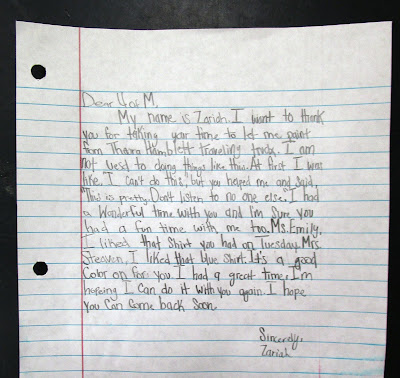 Dear U of M,
My name is Zariah. I want to thank
you for taking your time to let me paint
from Thaura Hamblett traveling trunk. I am
not uesd to doing things like this. At first I was
like, I can't do this, but you helped me and said,
"This is pretty. Don't listen to no one else." I had
a wonderful time with you and I'm sure you
had a fun time with me too. Ms. Emily,
I liked that shirt you had on Tuesday. Mrs.
I liked that blue shirt. It's a good
color on for you. I had a great time. I'm
hopeing I can do it with you again. I hope
you can come back soon.
Sincerly,
Zariah